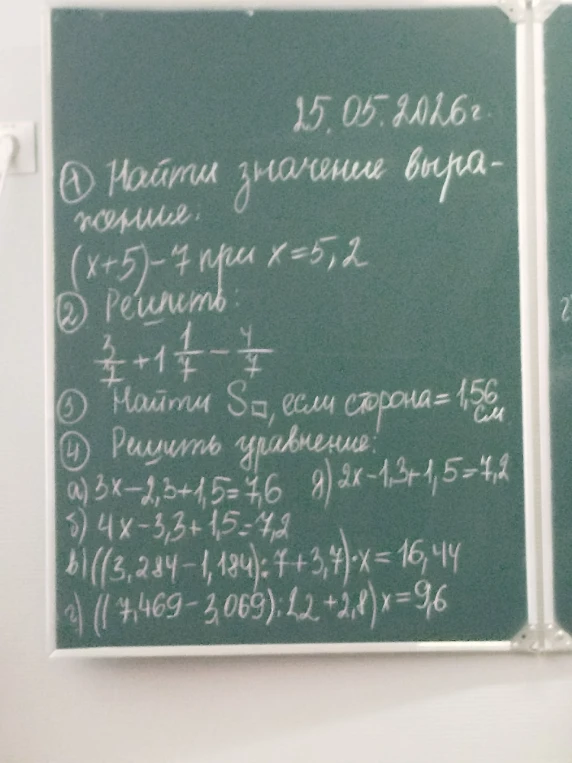 25.05.2026г.
① Найти значение выра-
жения.
(x+5)-7 при x=5,2
② Решить:
3/7 + 1 1/7 - 4/7
③ Найти S□, если сторона = 1,56 см
④ Решить уравнение:
а) 3x-2,3+1,5=7,6 д) 2x-1,3+1,5=7,2
б) 4x-3,3+1,5=7,2
в) ((3,284-1,184):7+3,7)·x=16,44
г) ((7,469-3,069):2,2+2,8)x=9,6